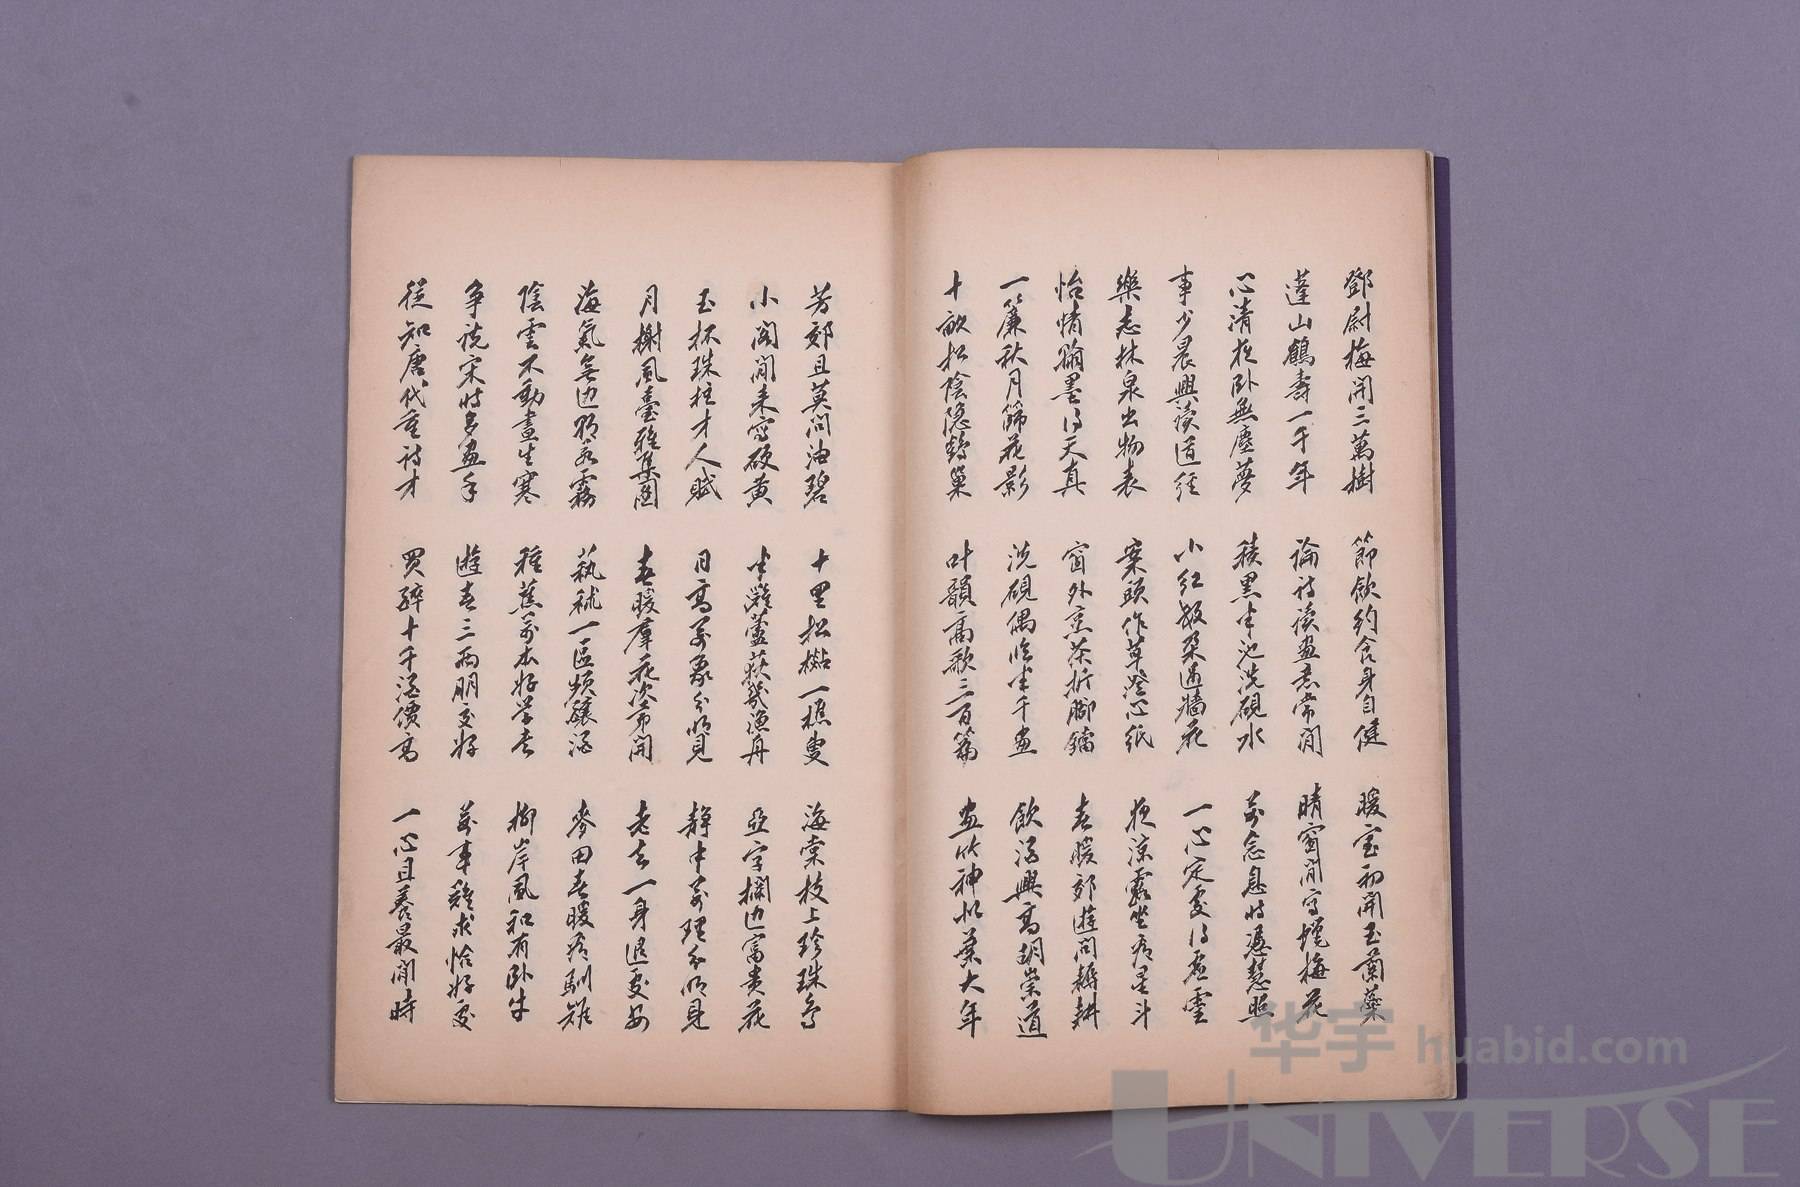 鄧尉梅開三萬樹
蓬山鶴壽一千年
心清夜臥無塵夢
事少晨興讀道經
樂志林泉出物表
怡情翰墨得天真
一簾秋月篩花影
十畝松陰隱鶴巢
節飲約食身自健
論詩讀畫意常閒
積黑半池洗硯水
小紅數朶過牆花
案頭作草澄心紙
窗外烹茶折腳鐺
洗硯偶臨半千畫
叶韻高歌三百篇
暖室初開玉蘭蘂
晴窗閒寫蠟梅花
萬念息時憑慧照
一心定處得虛靈
夜涼露坐看星斗
春暖郊遊問耦耕
飲酒興高胡崇道
畫竹神似葉大年
芳郊且莫問油碧
小閣閒來寫硬黄
玉杯珠柱才人賦
月榭風臺雅集圖
海氣無邊能為霧
陰雲不動晝生寒
爭說宋時多畫手
從知唐代重詩才
十里松檆一樵叟
半灘蘆荻幾漁舟
日高萬象分明見
春暖羣花次第開
秫一區頻釀酒
種蕉萬本好學書
遊春三兩朋交好
買醉十千酒價高
海棠枝上珍珠鳥
亞字欄邊富貴花
靜中萬理分明見
老去一身退處安
麥田春暖看馴雉
柳岸風和有臥牛
萬事難求恰好處
一心且養最閒時
华宇 huabid.com
UNIVERSE